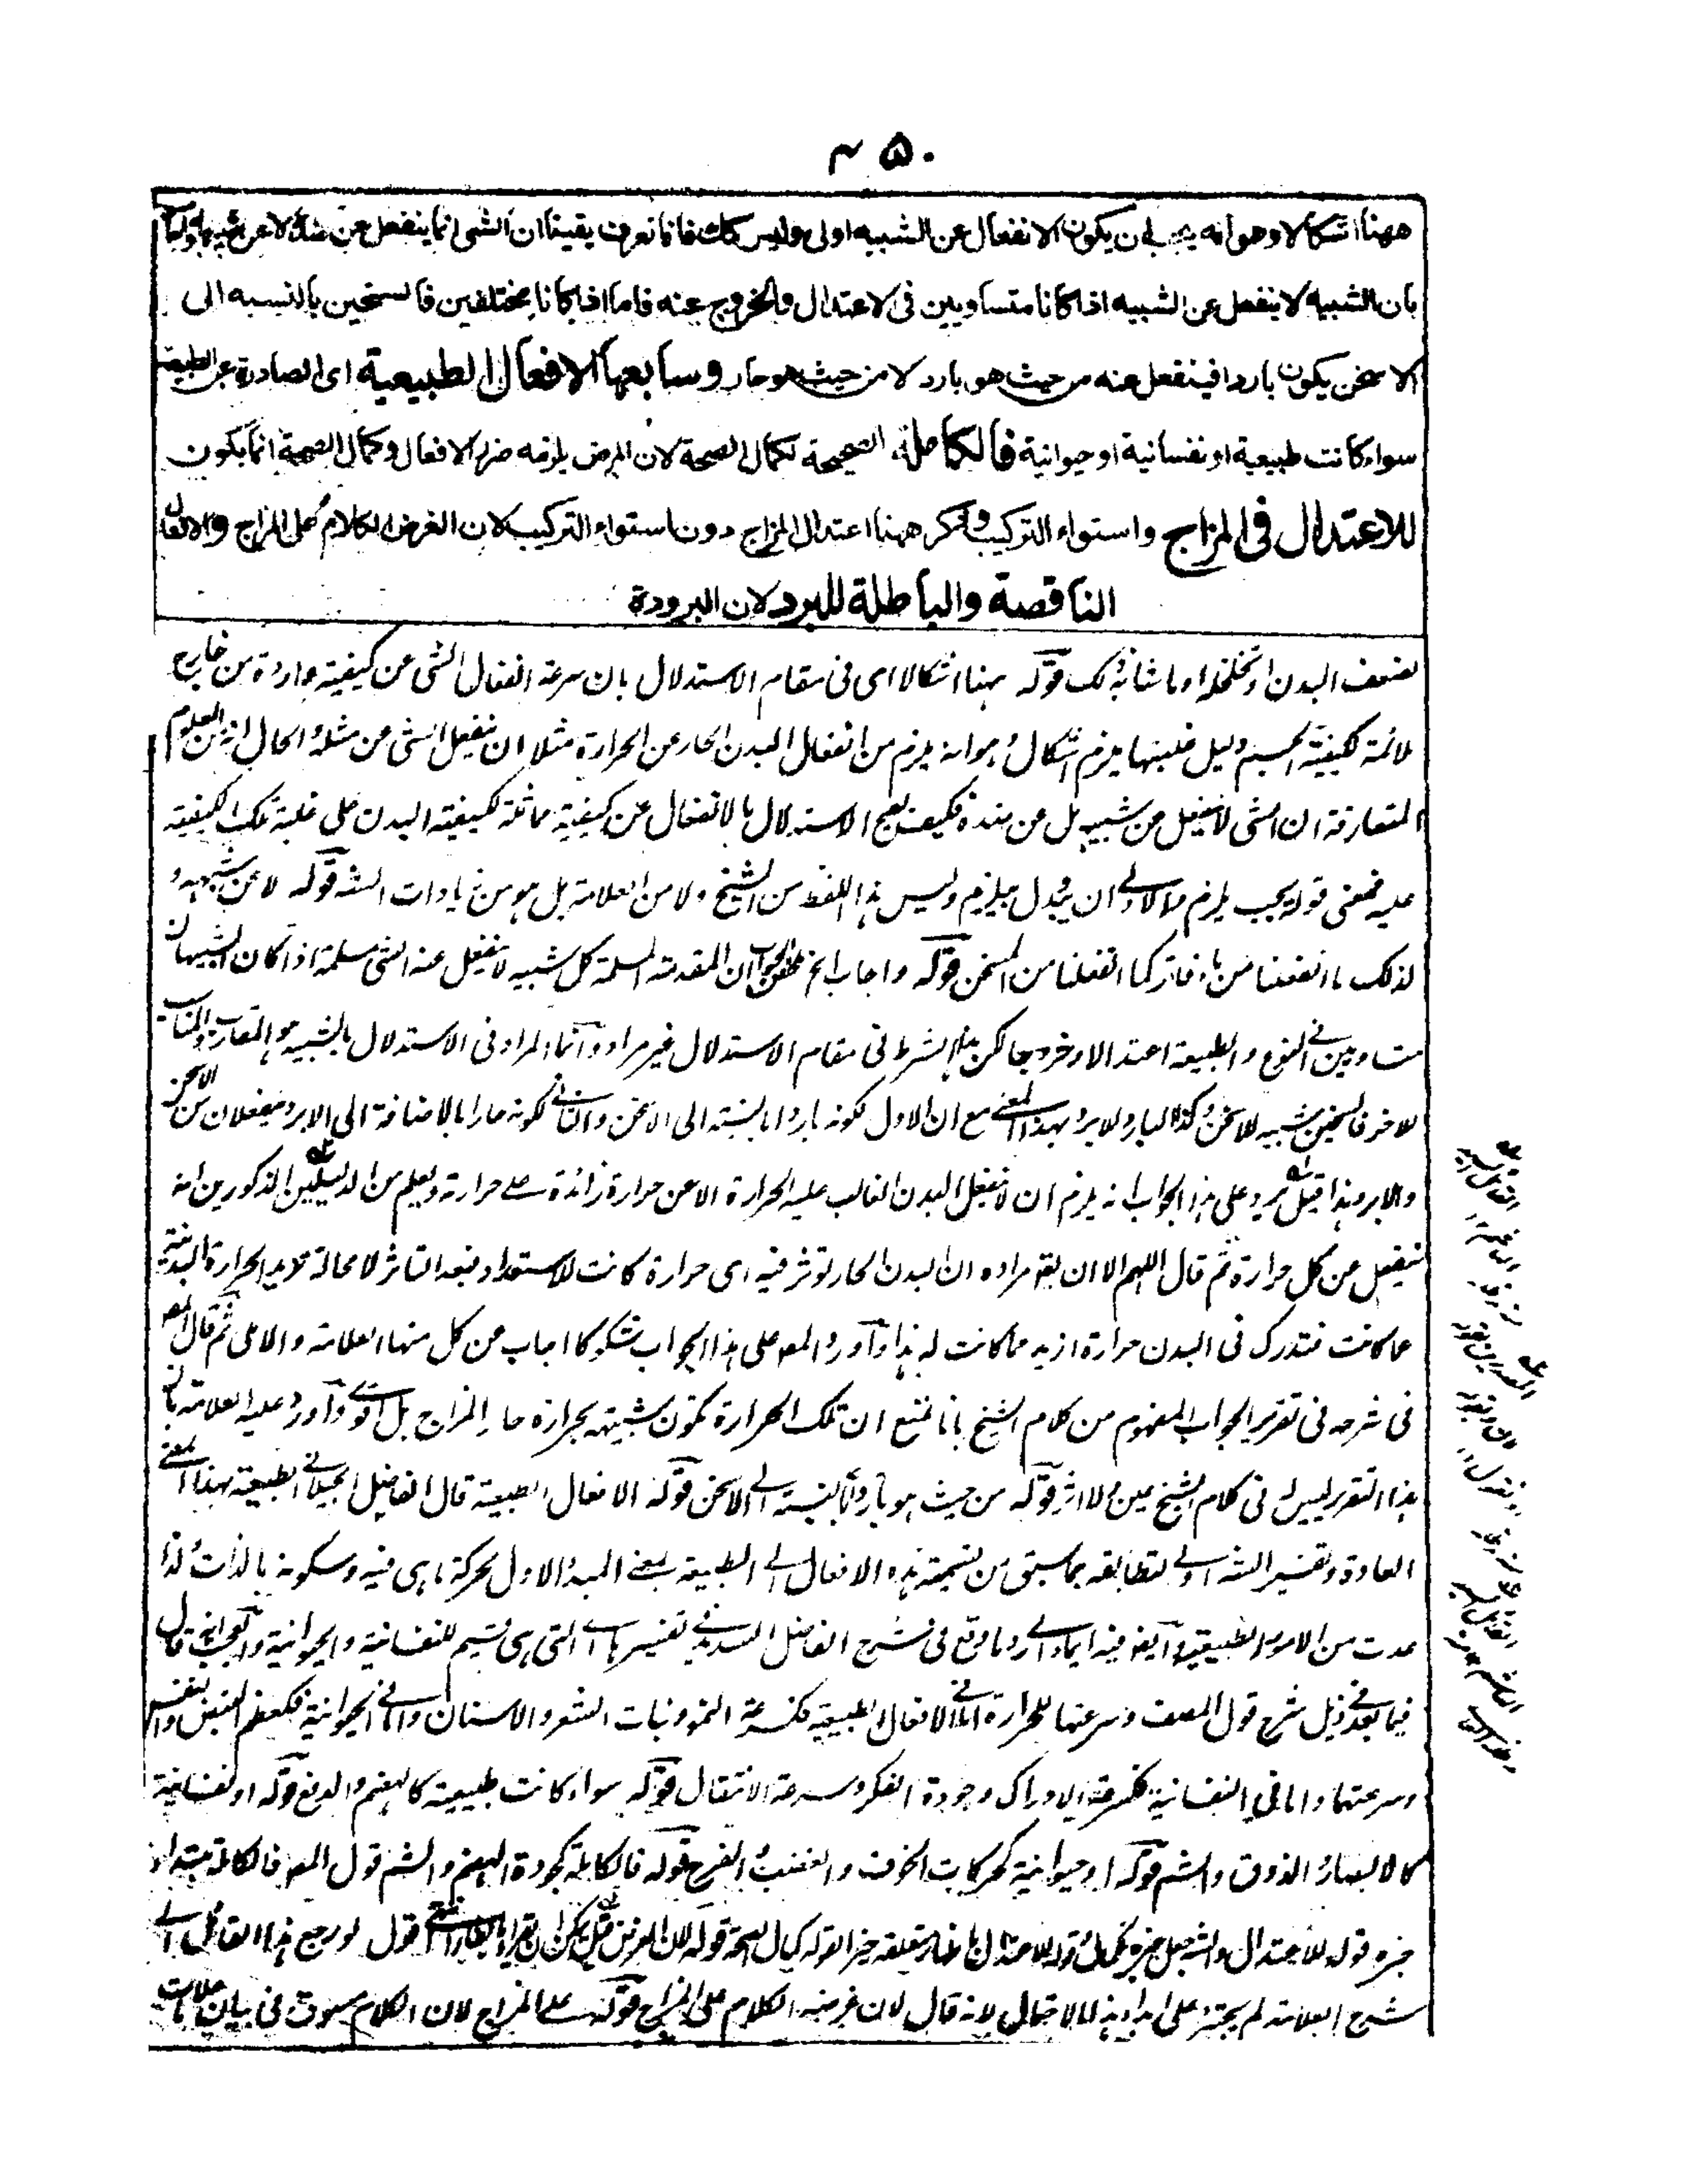 ۵۰
ههنا اشكالا وهو انه يجب ان يكون الانفعال عن الشبيه اولى وليس كك فاننا نعرف يقينا ان الشى انما ينفعل عن ضده لا عن شبيهه واجاب
بان الشبيه لا ينفعل عن الشبيه اذا كانا متساويين فى الاعتدال والخروج عنه فاما اذا كانا مختلفين فالسخين بالنسبه الى
الاسخن يكون باردا فينفعل عنه من حيث هو بارد لا من حيث هو حار وسابعها الافعال الطبيعية اى الصادرة عن الطبيعة
سواء كانت طبيعية او نفسانية او حيوانية فالكاملة الصحيحة لكمال الصحة لان المرض يلزمه ضرر الافعال وكمال الصحة انما يكون
للاعتدال فى المزاج واستواء التركيب وذكر ههنا اعتدال المزاج دون استواء التركيب لان الغرض الكلام على المزاج والافعال
الناقصة والباطلة للبرد لان البرودة
لضعف البدن او تخلخله او ما شابه ذلك قوله ههنا اشكالا اى فى مقام الاستدلال بان سرعة انفعال الشى عن كيفية واردة من خارج
ملائمة لكيفية الجسم دليل غلبتها يلزم اشكال وهو انه يلزم من انفعال البدن الحار عن الحرارة مثلا ان ينفعل الشى من مثله والحال انه من العلوم
المتعارفة ان الشى لا ينفعل من شبيهه بل عن ضده فكيف يصح الاستدلال بالانفعال عن كيفية مماثلة لكيفية البدن على غلبة تلك الكيفية
عليه فمعنى قوله يجب يلزم والاولى ان يبدل بيلزم وليس هذا اللفظ من الشيخ ولا من العلامة بل هو من زيادات الشه قوله لا عن شبيهه و
لذلك ما انفعلنا من ماء فاتر كما انفعلنا من المسخن قوله واجاب الخ ملخص الجواب ان المقدمة المسلمة كل شبيه لا ينفعل عنه الشى مسلمة اذا كان الشبيهان
متساويين فى النوع والطبيعة اعتدالا وخروجا لكن هذا الشرط فى مقام الاستدلال غير مراد وانما المراد فى الاستدلال بالشبيه هو المتقارب والمناسب
للاخر فالسخين شبيه للاسخن وكذا البارد للابرد بهذا المعنى مع ان الاول لكونه باردا بالنسبة الى الاسخن والثانى لكونه حارا بالاضافة الى الابرد منفعلان من الاسخن
والابرد هذا قيل يرد على هذا الجواب انه يلزم ان لا ينفعل البدن الغالب عليه الحرارة الا عن حرارة زائدة على حرارته ويعلم من الدليلين المذكورين انه
ينفعل عن كل حرارة ثم قال اللهم الا ان يقه مراده ان البدن الحار تؤثر فيه اى حرارة كانت للاستعداد فبعد التاثر لا محالة تزيد الحرارة البدنية
عما كانت فتدرك فى البدن حرارة ازيد مما كانت له هذا واورد المصه على هذا الجواب شكوكا اجاب عن كل منها العلامة والاملى ثم قال المصه
فى شرحه فى تقرير الجواب المفهوم من كلام الشيخ بانا نمنع ان تلك الحرارة تكون شبيهة بحرارة حار المزاج بل اقوى واورد عليه العلامة بان
هذا التقرير ليس له فى كلام الشيخ عين ولا اثر قوله من حيث هو بارد اى بالنسبة الى الاسخن قوله الافعال الطبيعية قال الفاضل الجيلانى الطبيعية بهذا المعنى
العادة وتفسير الشه اولى لتطابقه بما سبق من تسمية هذه الافعال الى الطبيعية بمعنى المبدء الاول لحركة ما هى فيه وسكونه بالذات ولذا
عدت من الامور الطبيعية وايضا فيه ايماء الى رد ما وقع فى شرح الفاضل السديدى تفسيرها بالتى هى قسيم للنفسانية والحيوانية والعجب انه قال
فيما بعد فى ذيل شرح قول المصنف وسرعتها للحرارة اما فى الافعال الطبيعية فكسرعة النمو ونبات الشعر والاسنان واما فى الحيوانية فكعظم النبض والنفس
وسرعتهما واما فى النفسانية فكسرعة الادراك وجودة الفكر وسرعة الانتقال قوله سواء كانت طبيعية كالهضم والدفع قوله او نفسانية
كالابصار والذوق والشم قوله او حيوانية كحركات الخوف والغضب والفرح قوله فالكاملة كجودة الهضم والشم قول المصه فالكاملة مبتداء
خبره قوله للاعتدال والشه جعل خبره لكمال قوله للاعتدال باظهار متعلقه خبرا لقوله كمال الصحة قوله لان الغرض قيل يمكن ان يقراء اقول لو رجع هذا القائل الى
شرح العلامة لم يجترء على ابداء هذا الاحتمال لانه قال لان غرضه الكلام على المزاج قوله على المزاج لان الكلام مسوق فى بيان علامات